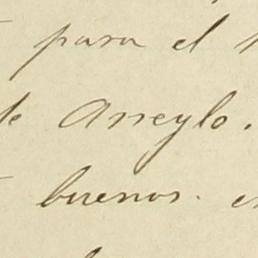 para el
de Arreglo.
buenos. e